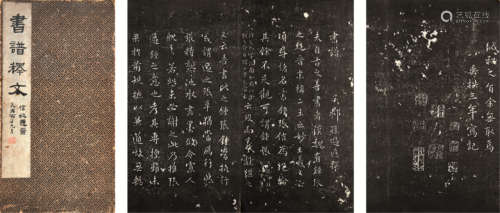 書譜釋文
書譜
吳郡孫過庭撰
夫自古之善書者漢魏有鍾張
之絕晉末稱二王之妙王羲之云
頃尋諸名書鍾張信為絕倫
其餘不足觀可謂鍾張云沒而羲獻繼之
又云吾書比之鍾張鍾當抗行
或謂過之張草猶當雁行然
張精熟池水盡墨假令寡人
耽之若此未必謝之此乃推張
邁鍾之意也考其專擅雖未
果於前規摭以兼通故無慚
緘秘之旨余無取焉
垂拱三年寫記